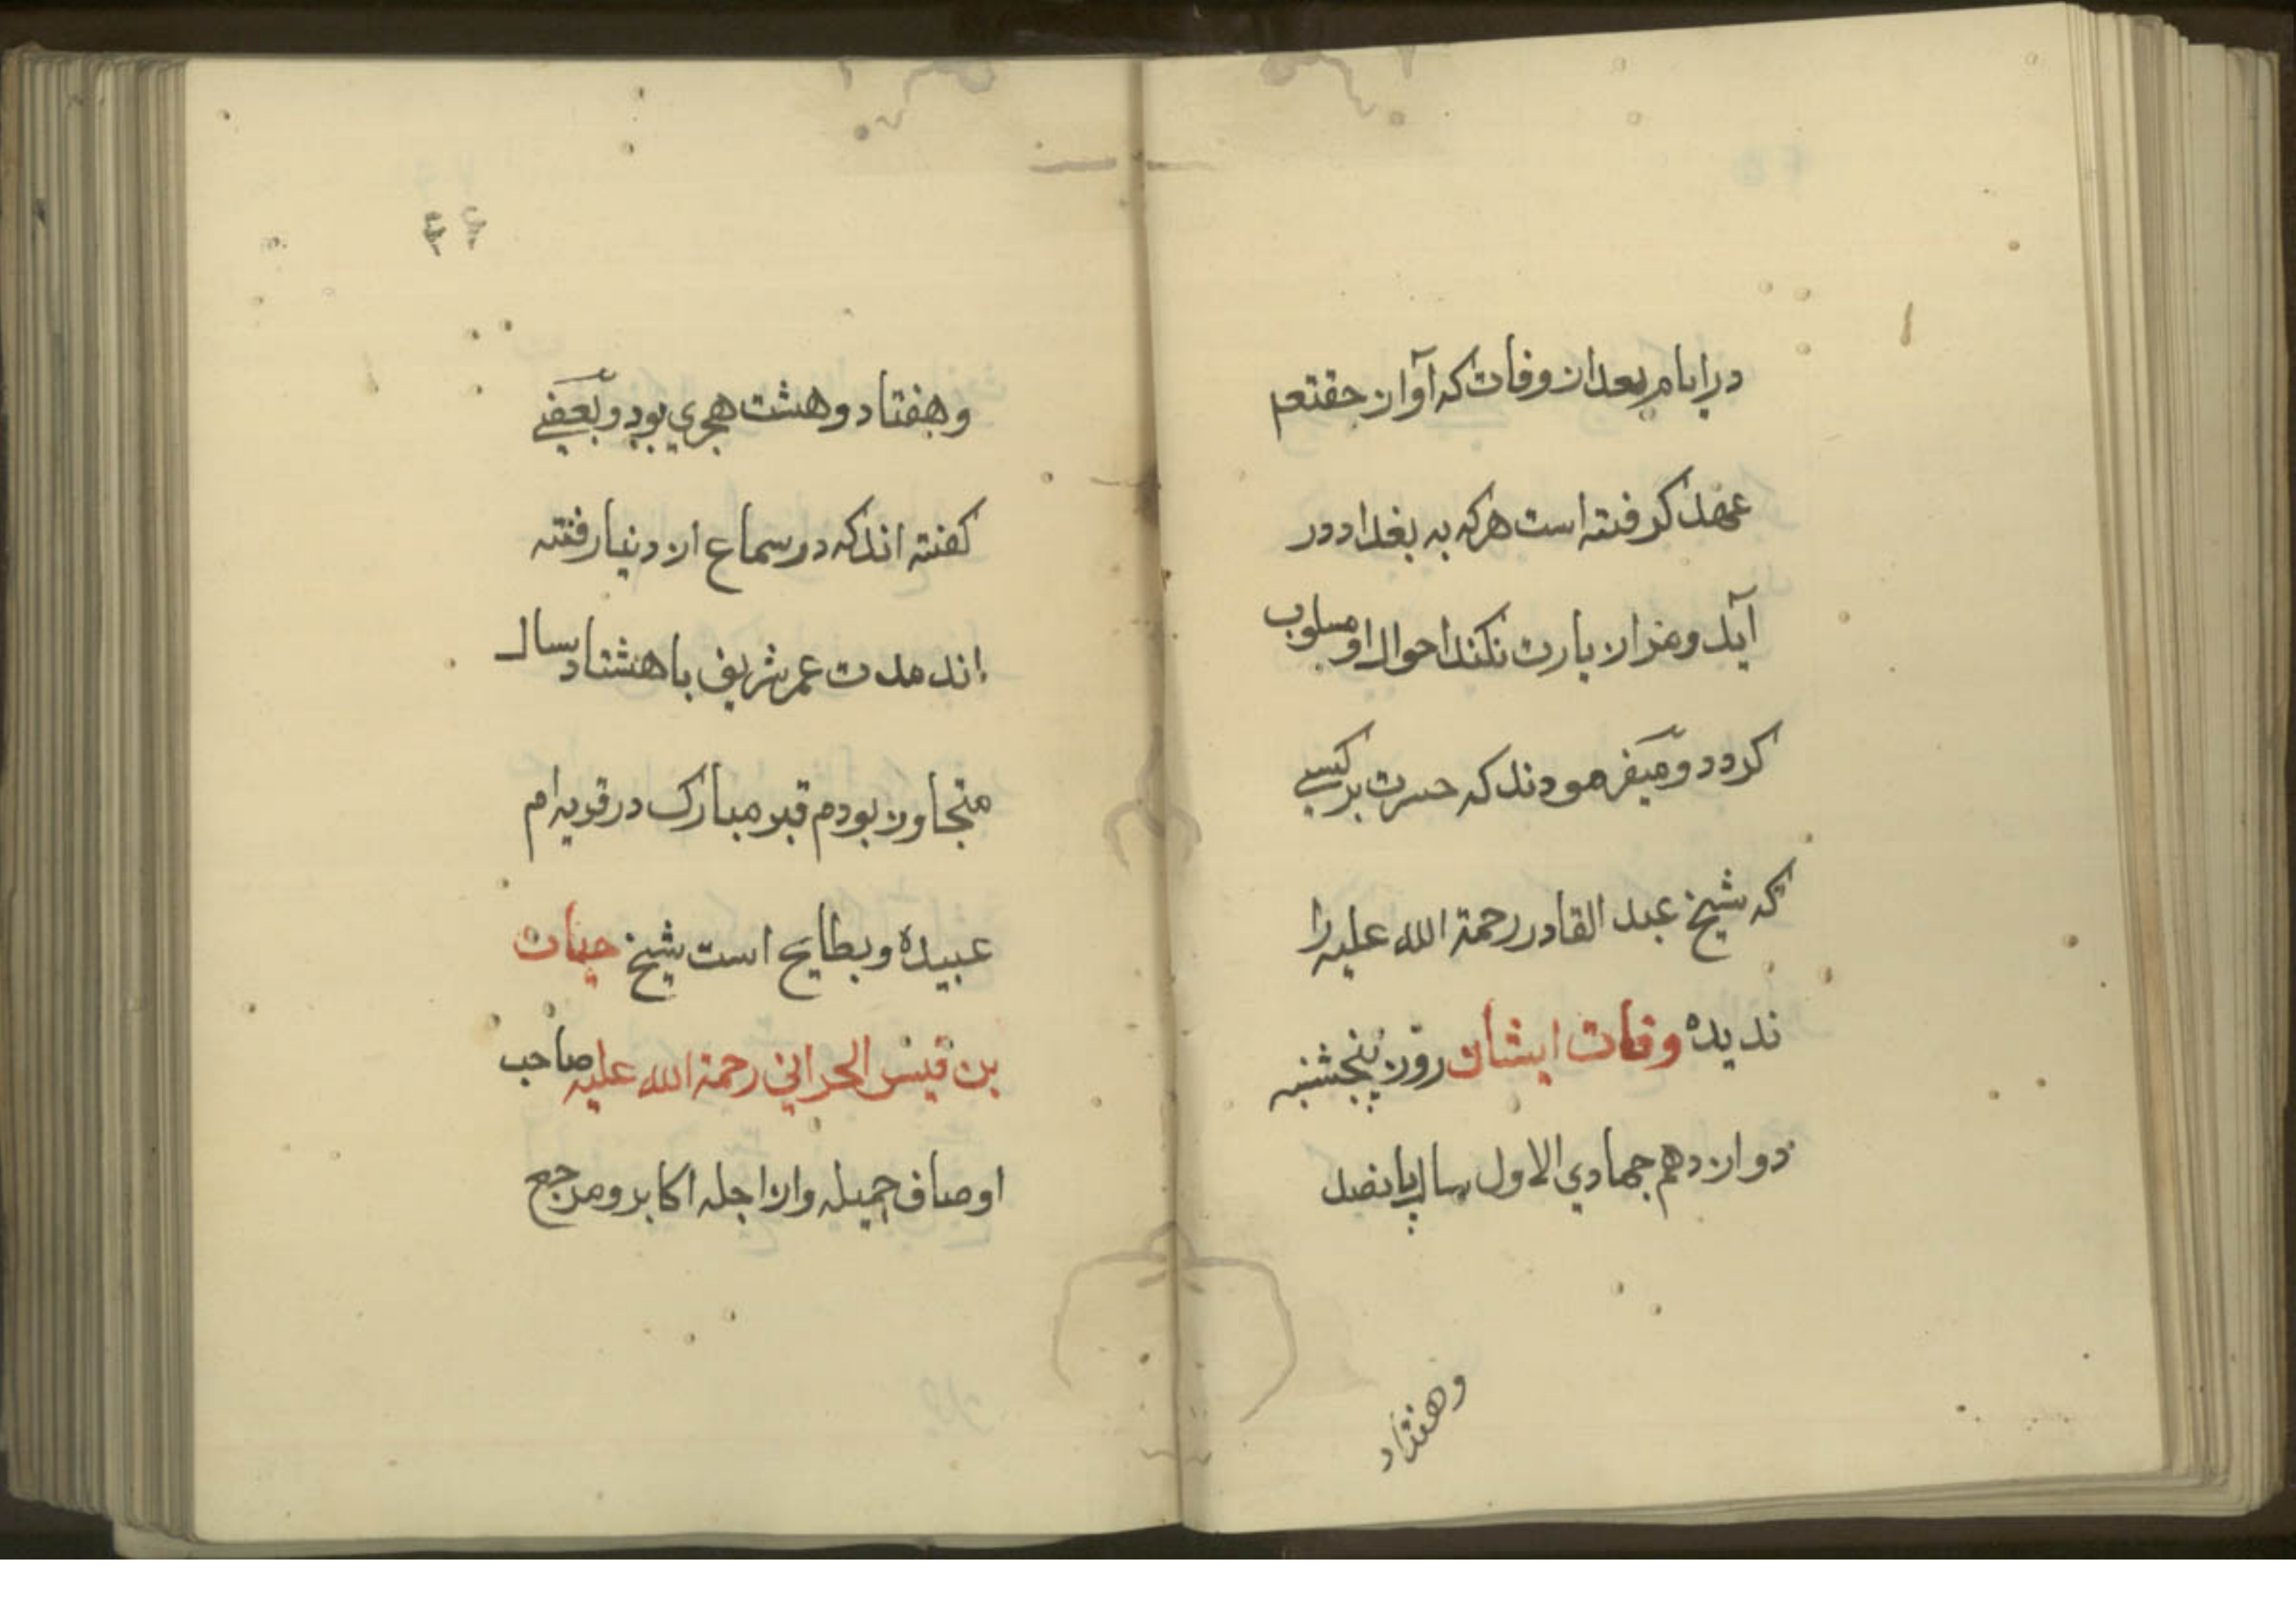 در ایام بعد از وفات که آوان حقتعم
عهد کرفته است هرکه به بغداد در
آید و مزار زیارت نکند احوال او مسلوب
کردد و میفرمودند که حسرت بر کسی
که شیخ عبد القادر رحمة الله علیه را
ندیده وفات ایشان روز پنجشنبه
دوازدهم جمادي الاول سال پانصد
وهفتاد
٤٤
وهفتاد و هشت هجري بود و بعضے
کفته اند که در سماع از دنیا رفته
اند مدت عمر شریف با هشتاد سال
متجاوز بودم قبر مبارک در قریه ام
عبیده و بطایح است شیخ حیات
بن قیس الحراني رحمة الله علیه صاحب
اوصاف جمیله و از اجله اکابر و مرجع